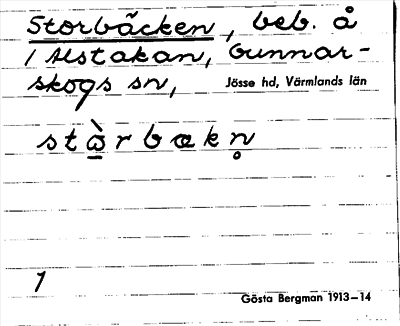 Storbäcken, beb. å
1 Älstakan, Gunnar-
skogs sn, Jösse hd, Värmlands län
stὼrbækn̥
1
Gösta Bergman 1913–14